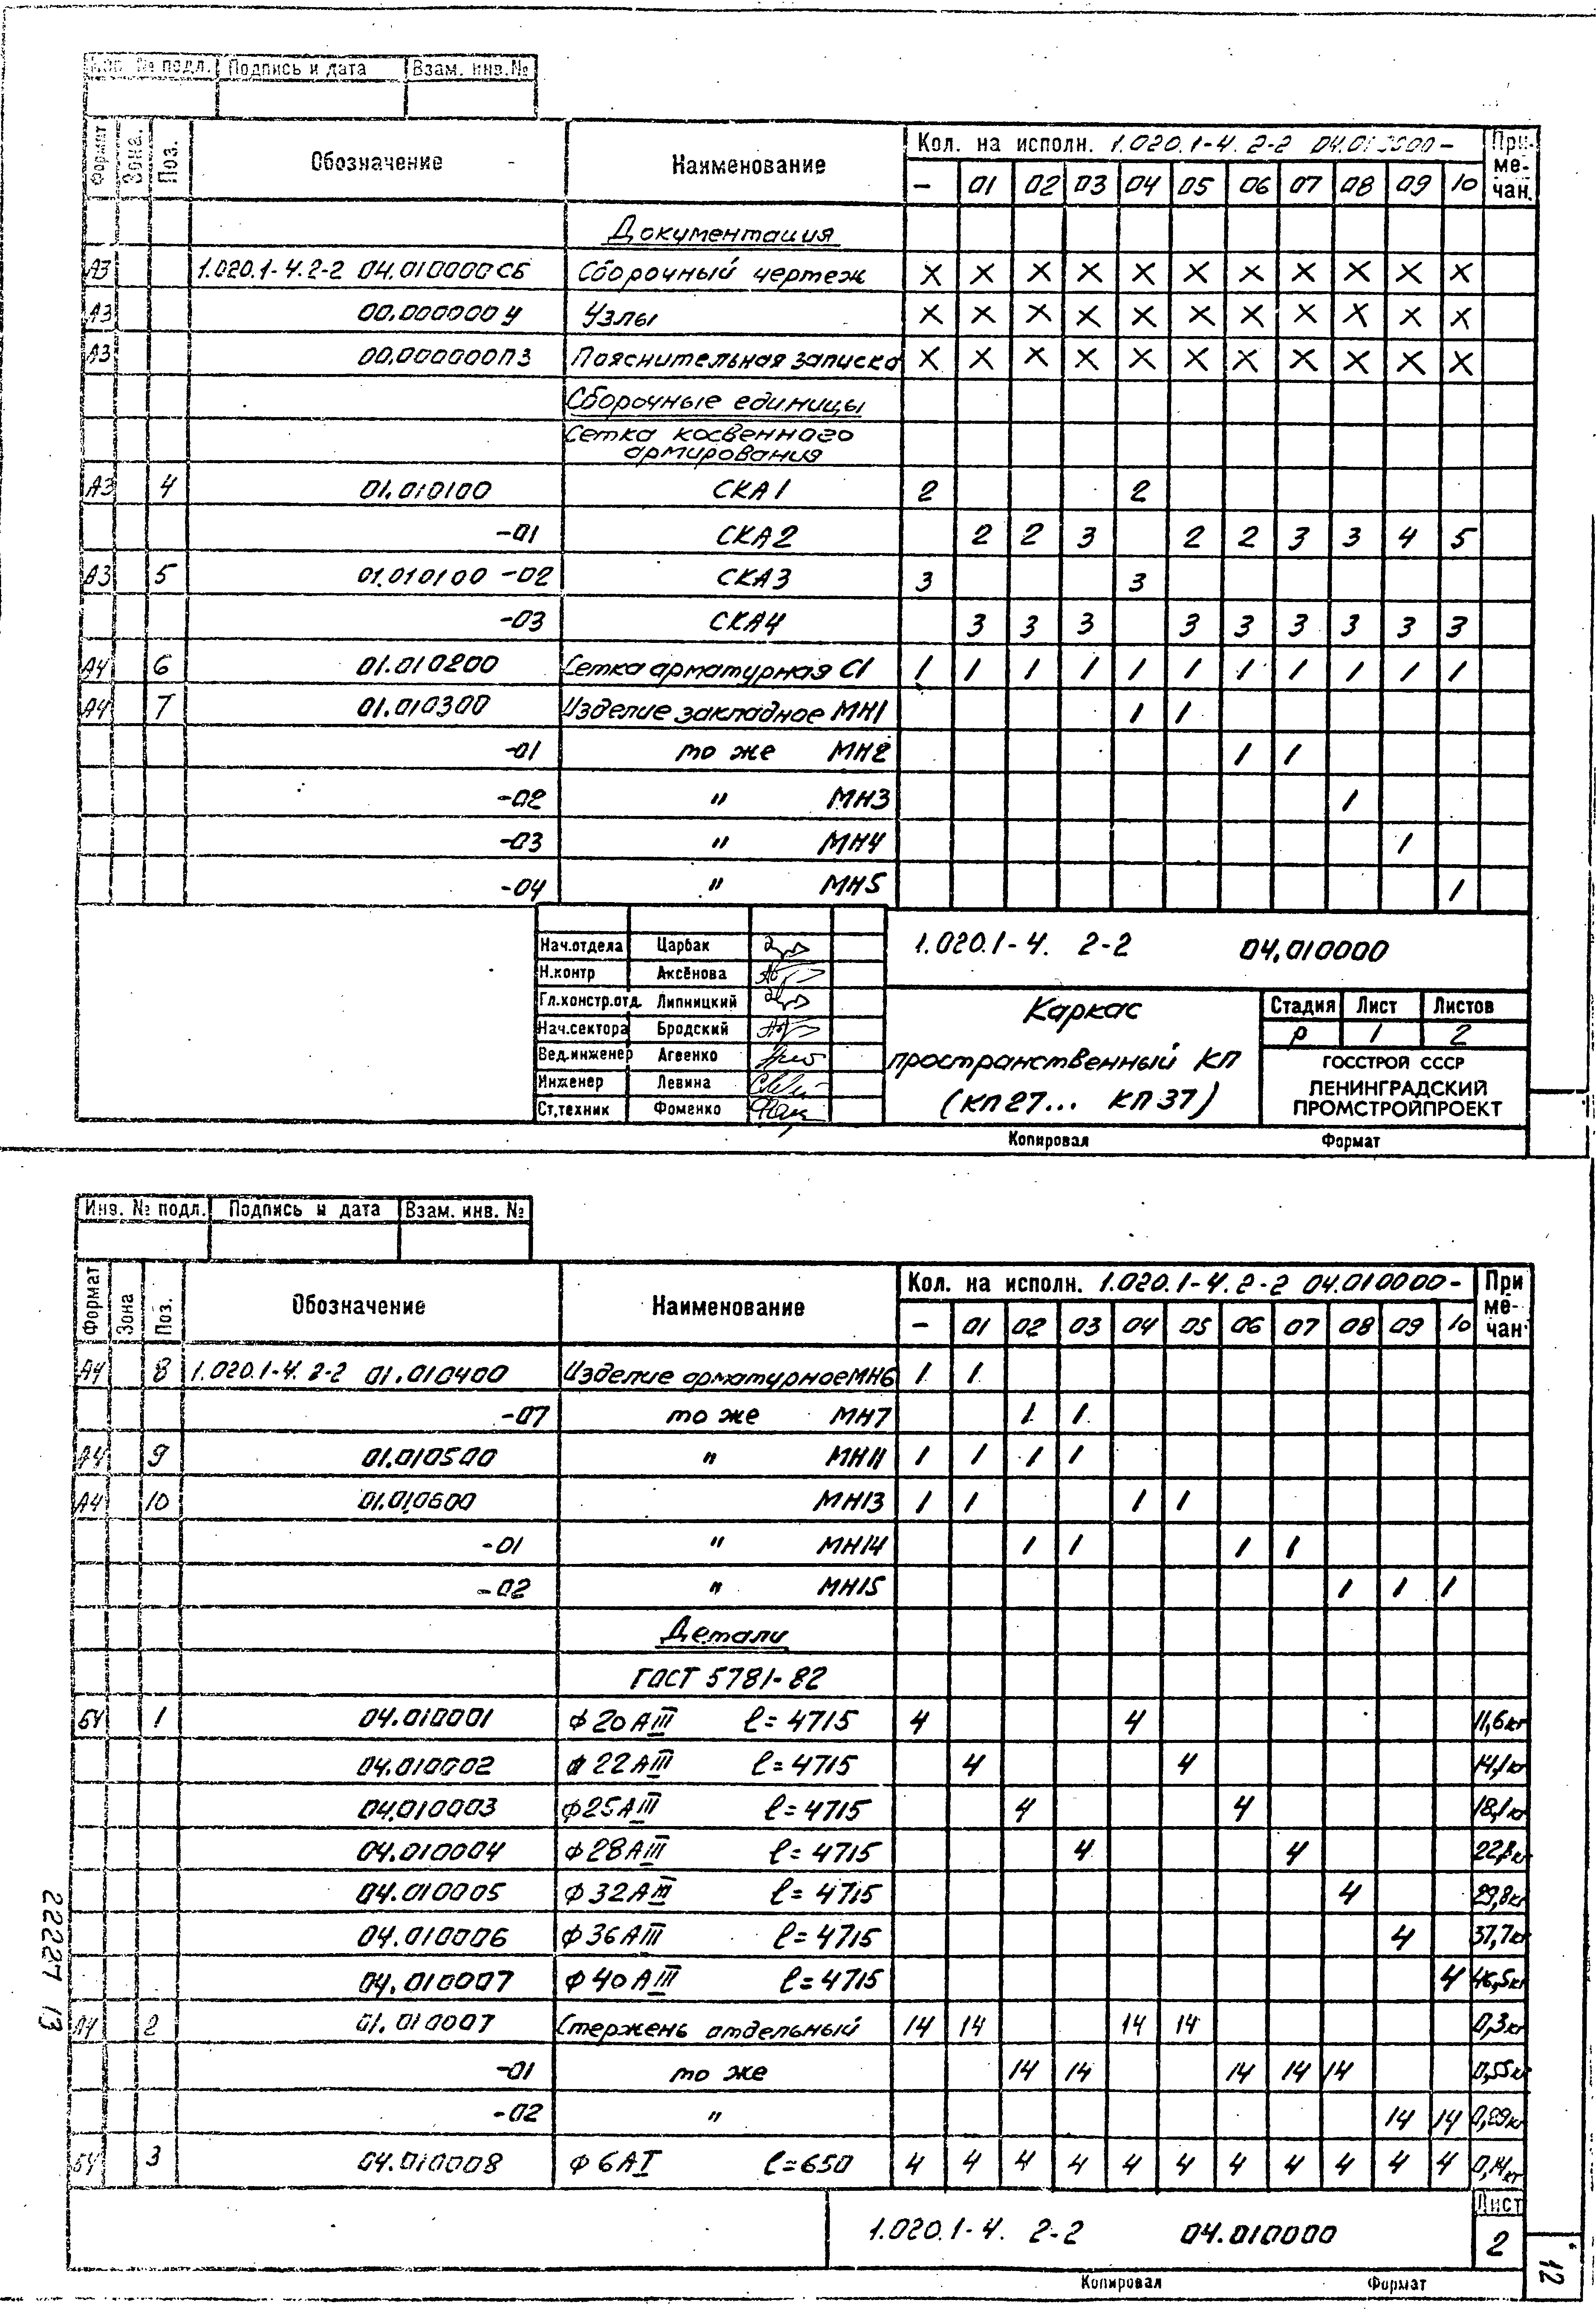 Инв. № подл. Подпись и дата Взам. инв. №
Формат Зона. Поз. Обозначение Наименование Кол. на исполн. 1.020.1-4. 2-2 04.010000- При-ме-чан.
– 01 02 03 04 05 06 07 08 09 10
Документация
А3 1.020.1-4.2-2 04.010000СБ Сборочный чертеж X X X X X X X X X X X
А3 00.000000У Узлы X X X X X X X X X X X
А3 00.000000ПЗ Пояснительная записка X X X X X X X X X X X
Сборочные единицы
Сетка косвенного
армирования
А3 4 01.010100 СКА1 2 2
-01 СКА2 2 2 3 2 2 3 3 4 5
А3 5 01.010100 -02 СКА3 3 3
-03 СКА4 3 3 3 3 3 3 3 3 3
А4 6 01.010200 Сетка арматурная С1 1 1 1 1 1 1 1 1 1 1 1
А4 7 01.010300 Изделие закладное МН1 1 1
-01 то же МН2 1 1
-02 " МН3 1
-03 " МН4 1
-04 " МН5 1
Нач.отдела Царбак
Н.контр Аксёнова
Гл.констр.отд. Липницкий
Нач.сектора Бродский
Вед.инженер Агеенко
Инженер Левина
Ст.техник Фоменко
1.020.1-4. 2-2 04.010000
Каркас
пространственный КП
(КП27... КП37)
Стадия Лист Листов
Р 1 2
ГОССТРОЙ СССР
ЛЕНИНГРАДСКИЙ
ПРОМСТРОЙПРОЕКТ
Копировал Формат
Инв. № подл. Подпись и дата Взам. инв. №
Формат Зона Поз. Обозначение Наименование Кол. на исполн. 1.020.1-4.2-2 04.010000- При ме-чан.
– 01 02 03 04 05 06 07 08 09 10
А4 8 1.020.1-4. 2-2 01.010400 Изделие арматурное МН6 1 1
-07 то же МН7 1 1
А4 9 01.010500 " МН11 1 1 1 1
А4 10 01.010600 МН13 1 1 1 1
-01 " МН14 1 1 1 1
-02 " МН15 1 1 1
Детали
ГОСТ 5781-82
БЧ 1 04.010001 ф20АIII ℓ=4715 4 4 11,6кг
04.010002 ф22АIII ℓ=4715 4 4 14,1кг
04.010003 ф25АIII ℓ=4715 4 4 18,1кг
04.010004 ф28АIII ℓ=4715 4 4 22,8кг
04.010005 ф32АIII ℓ=4715 4 29,8кг
04.010006 ф36АIII ℓ=4715 4 37,7кг
04.010007 ф40АIII ℓ=4715 4 46,5кг
А4 2 01.010007 Стержень отдельный 14 14 14 14 0,3кг
-01 то же 14 14 14 14 14 0,55кг
-02 " 14 14 0,89кг
БЧ 3 04.010008 ф6АI ℓ=650 4 4 4 4 4 4 4 4 4 4 4 0,14кг
1.020.1-4. 2-2 04.010000
Лист
2
Копировал Формат
22227 13
12